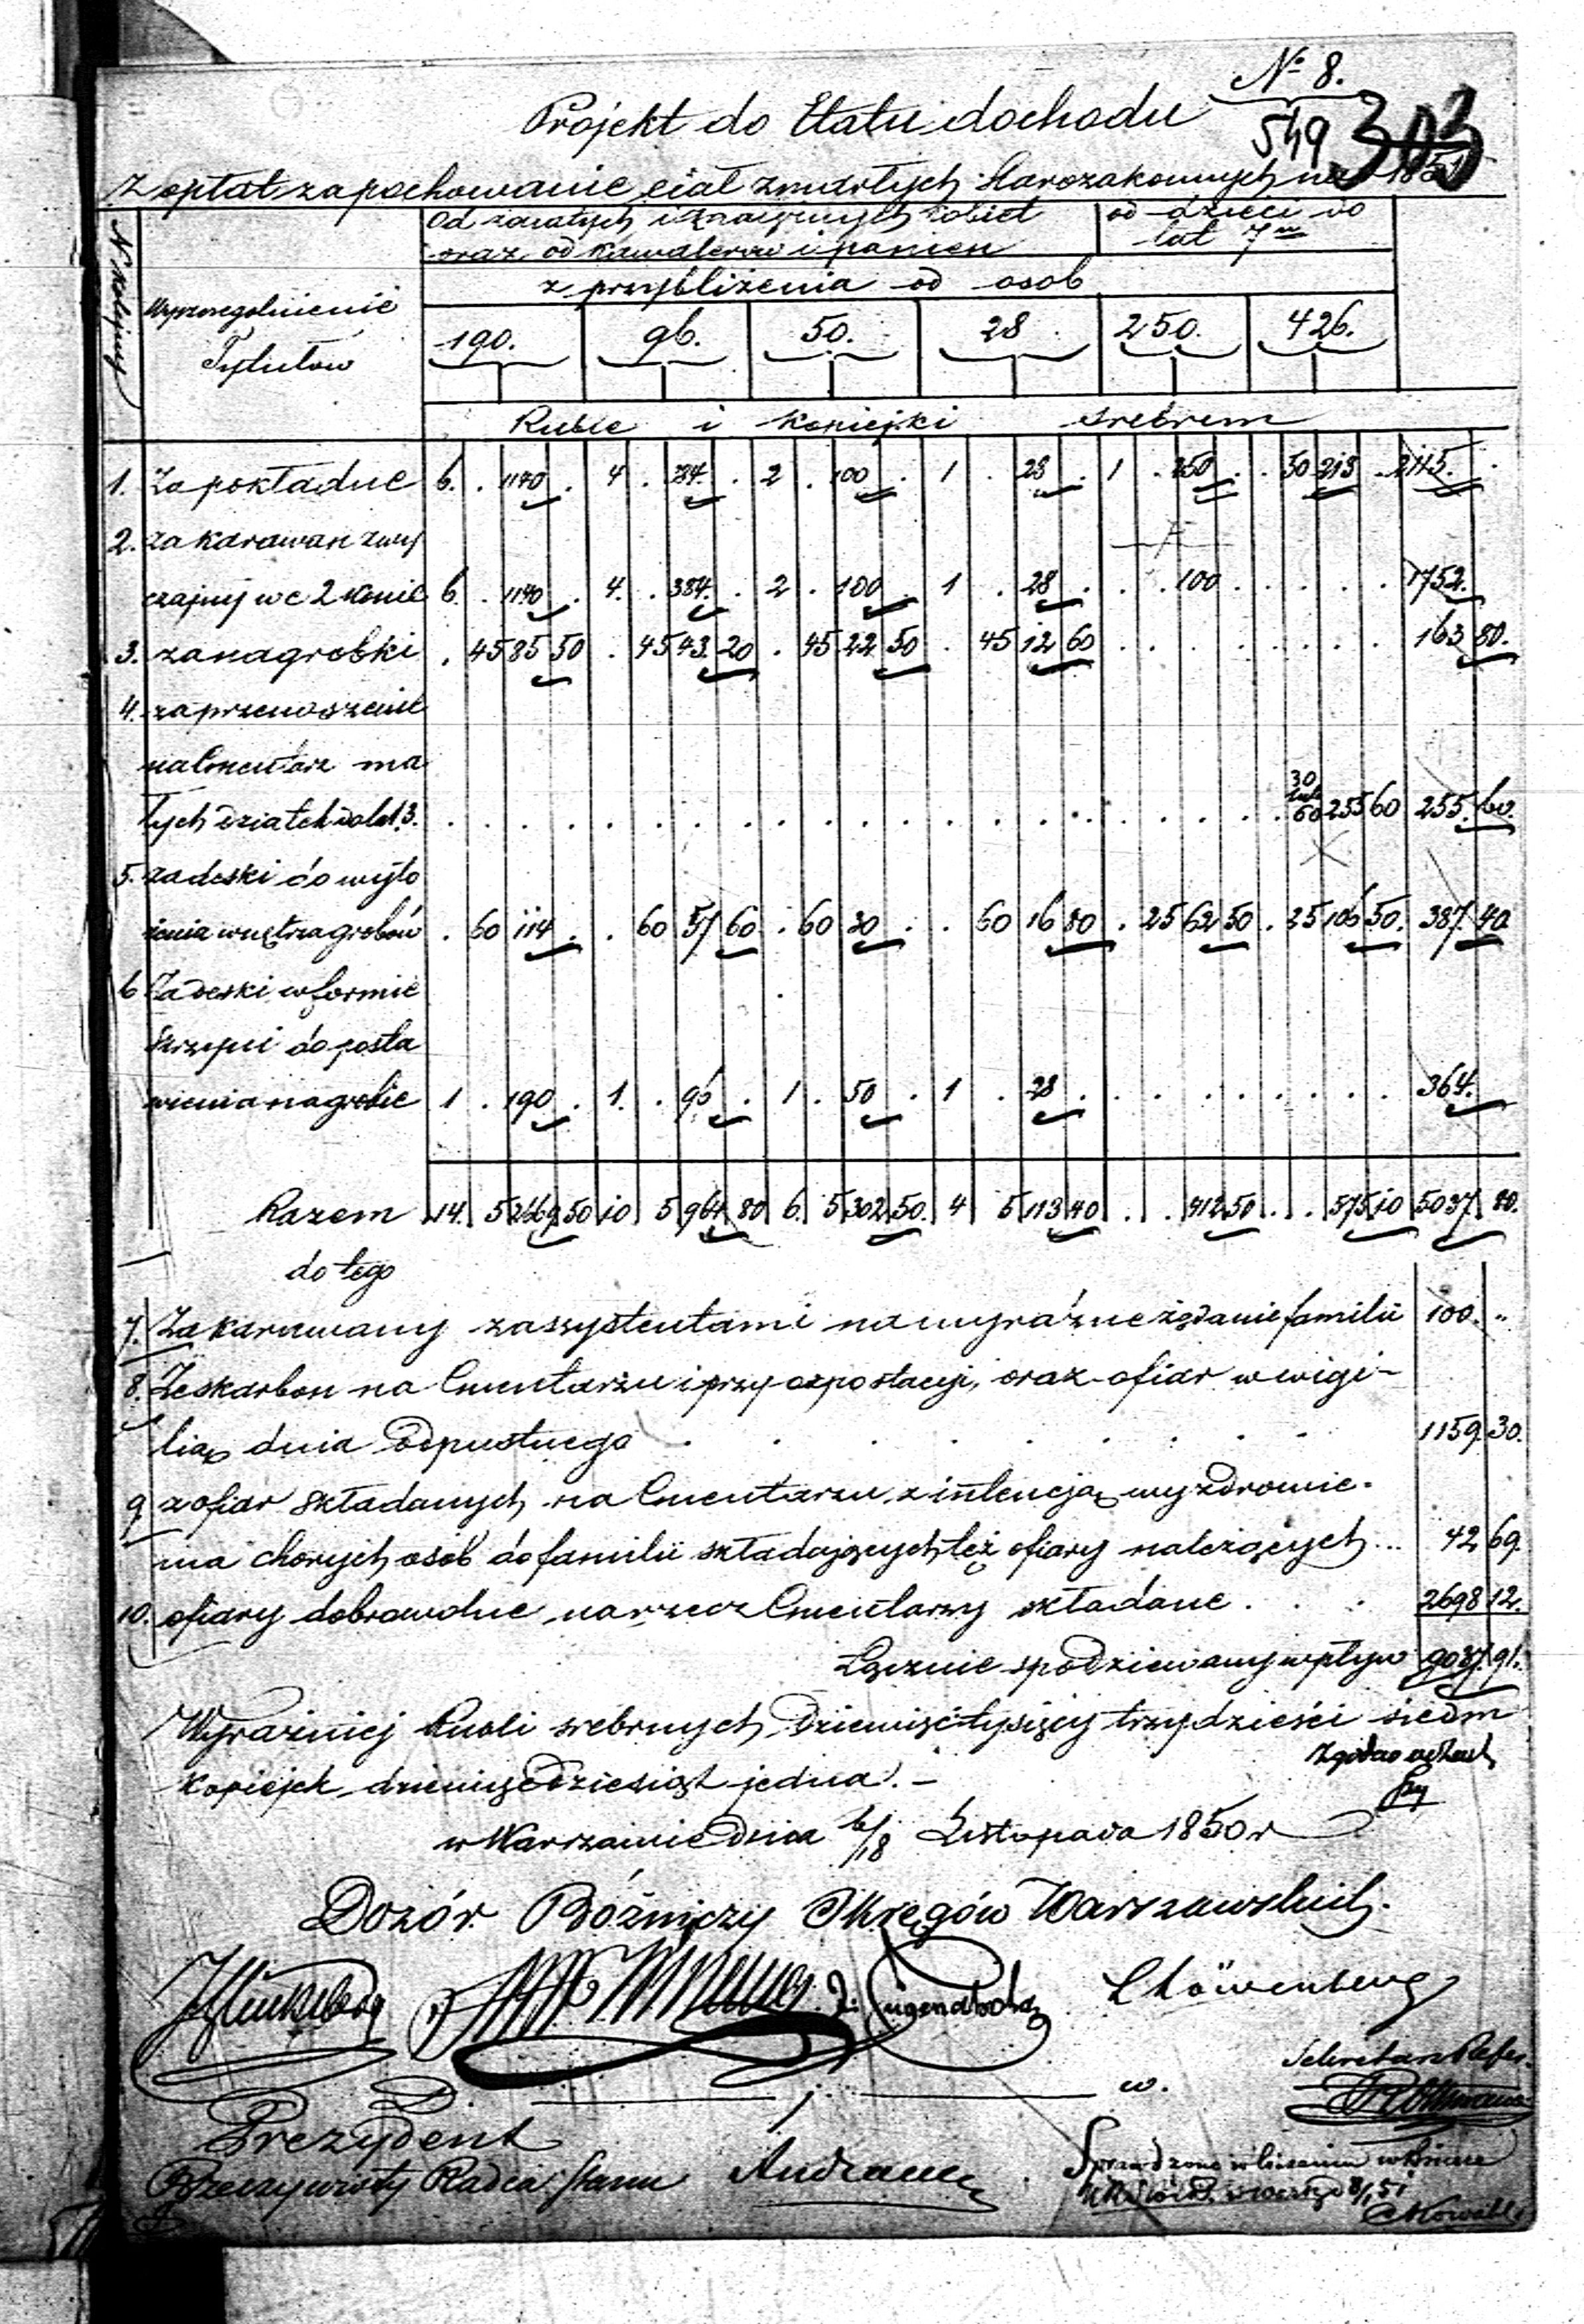 № 8.
Projekt do Etatu dochodu
549 303
z opłat za pochowanie ciał zmarłych Starozakonnych na 1851
N kolejny
Wyszczegolnienie
Tytułów
Od żonatych i kobiet
oraz od kawalerów i panien
od dzieci do
lat 7m
z przybliżenia od osob
190. 96. 50. 28 250. 426.
Ruble i kopiejki srebrem
1. Za pokładne 6. . 1140 . 4 . 384. . 2 . 100 . 1 . 28 . 1 . 250 . . 50 213 . 2115. .
2. za karawan zwy
czajny w e 2 konie 6. . 1140 . 4. . 384. . 2 . 100 . 1 . 28 . . . 100 . . . . . 1752.
3. za nagrobki . 45 85 50 . 45 43. 20 . 45 22 50 . 45 12 60 . . . . . . . . 163 80.
4. za przenoszenie
na Cmentarz ma
łych dziatek do lat 3. . . . . . . . . . . . . . . . . . . . . 30 60 255 60 255. 60.
5. za deski do wyło
żenia wnętrza grobów . 60 114 . . 60 57 60 . 60 30 . . 60 16 80 . 25 62 50 . 25 106 50. 387. 40.
6 Za deski w formie
skrzyni do posta
wienia na grobie 1 . 190 . 1. . 96 . 1 . 50 . 1 . 28 . . . . . . . . . 364.
Razem 14. 5 2669 50 10 5 964 80 6. 5 302 50. 4 5 113 40 . . 412 50 . . 575 10 5037 80.
do tego
7. Za karawany z assystentami na wyraźne żądanie familii 100. "
8. Ze skarbon na Cmentarzu i przy exportacyi, oraz ofiar w wigi-
lią dnia Odpustnego . . . . . . . 1159. 30.
9 z ofiar składanych na Cmentarzu z intencją wyzdrowie-
nia chorych osób do familii składających też ofiary należących ... 42 69.
10. ofiary dobrowolne na rzecz Cmentarzy składane . . . 2698 12.
Łącznie spodziewany wpływ 9037. 91.
Wyraźniej Rubli srebrnych Dziewięć tysięcy trzydzieści siedm
kopiejek dziewięćdziesiąt jedna. –
w Warszawie dnia 6/18 Listopada 1850 r
Dozór Bóźniczy Okręgów Warszawskich.
L Löwenberg
Sekretarz
w.
Prezydent
Rzeczywisty Radca Stanu
Sprawdzono w